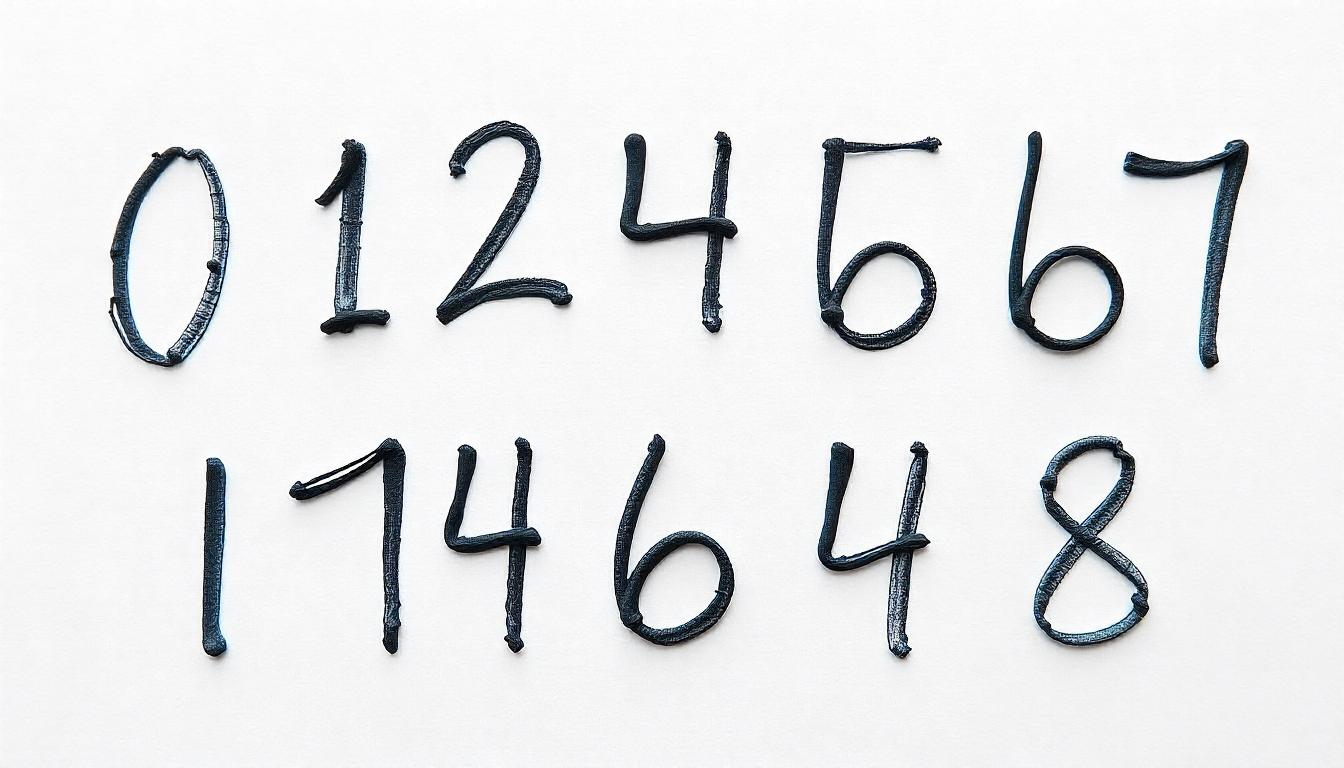 0 1 2 4 5 6 7
1 7 4 6 4 8